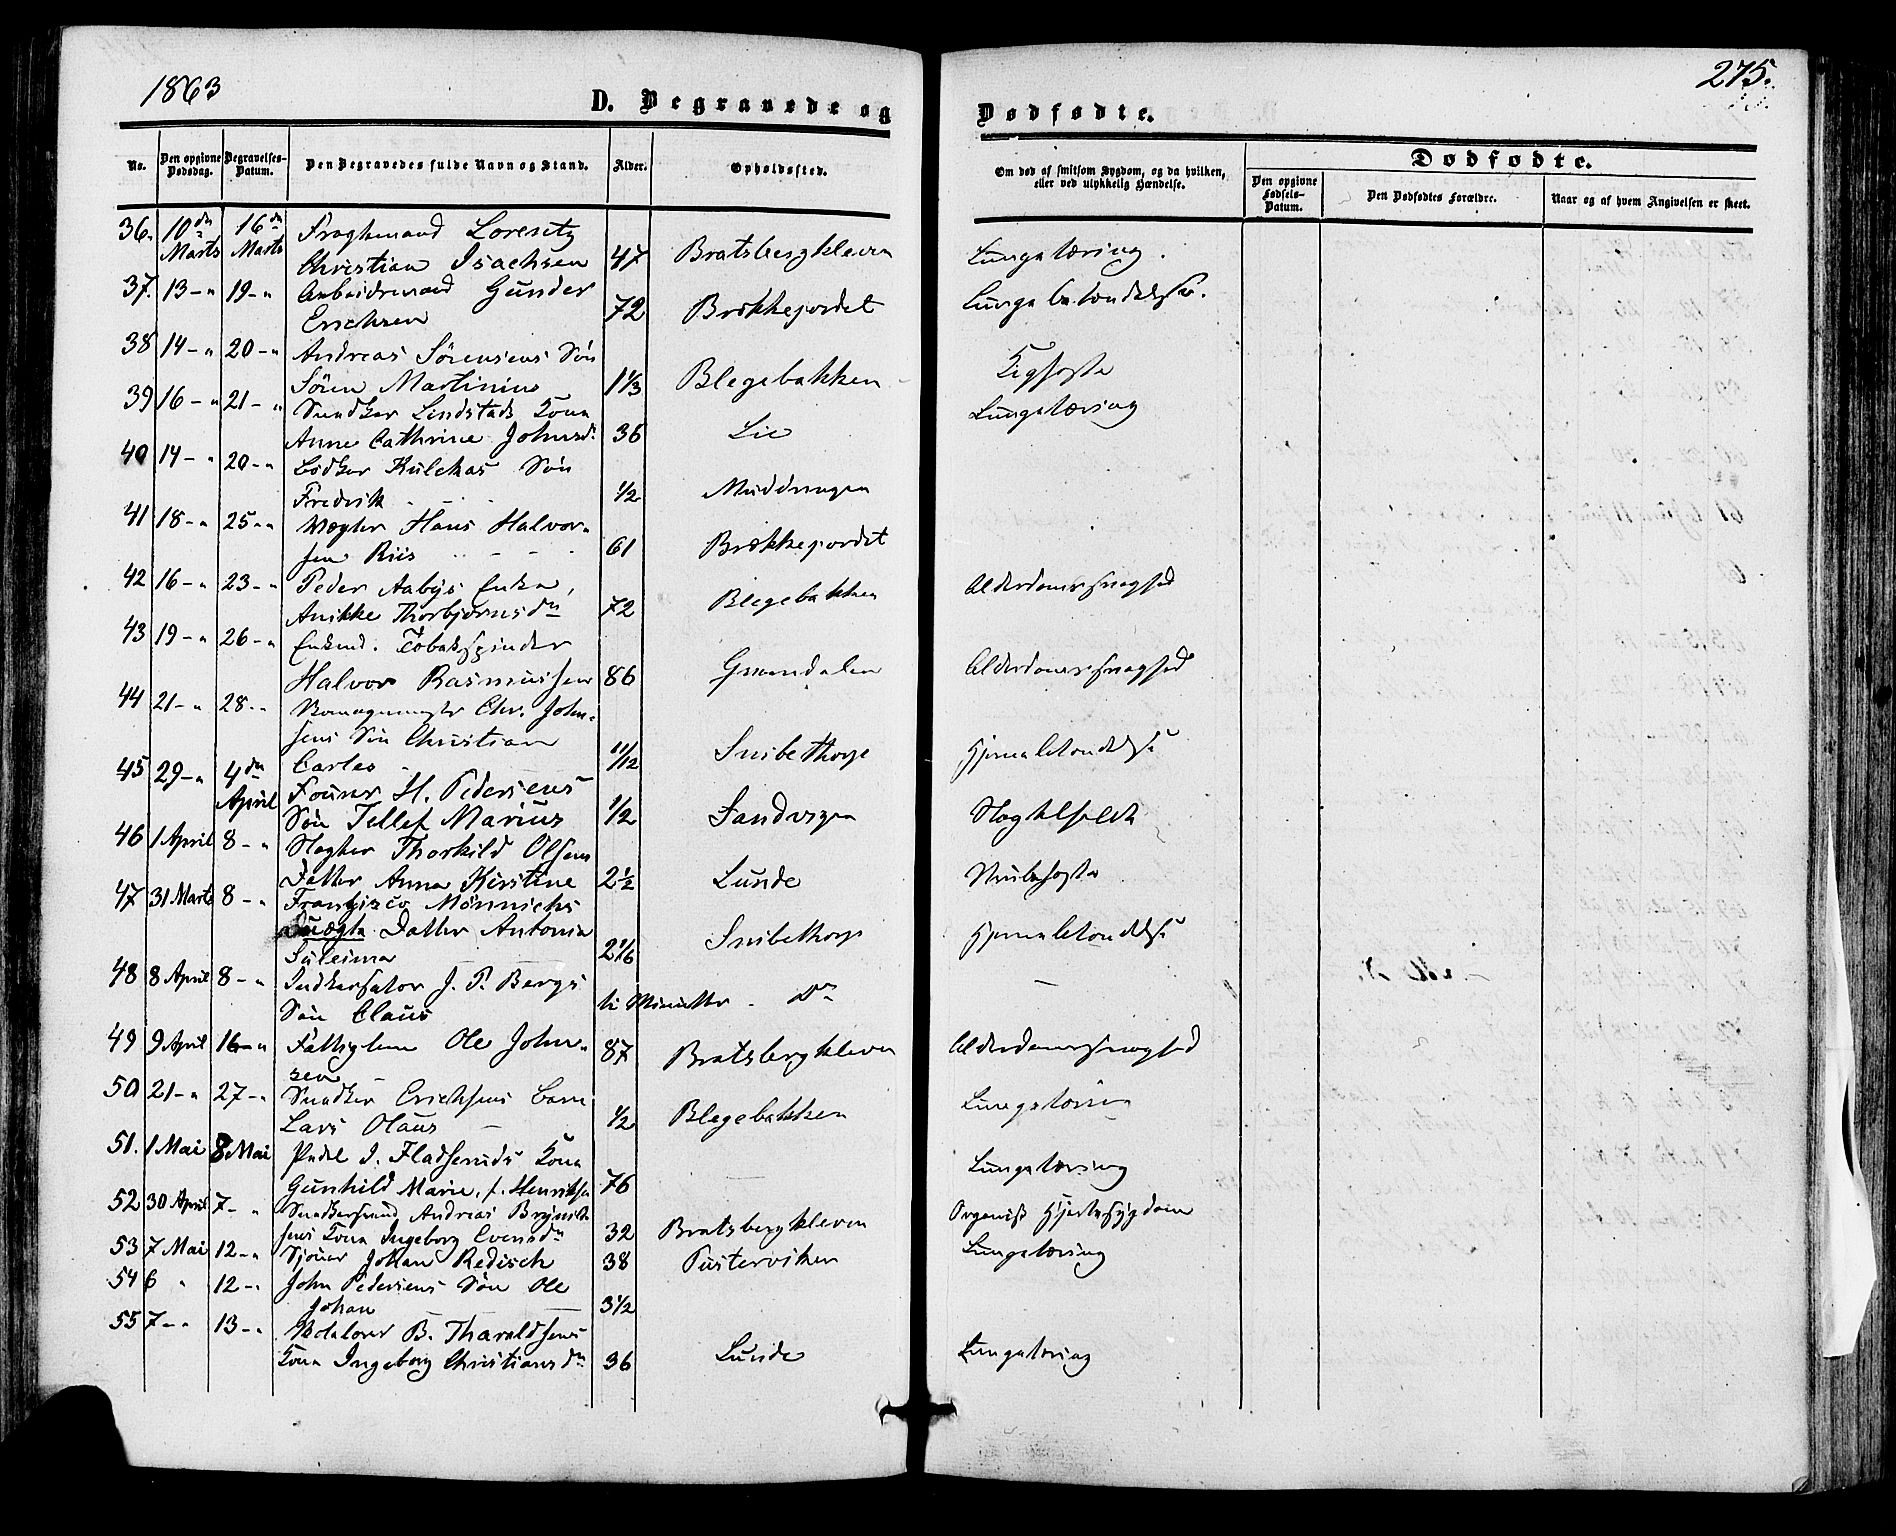 1863
275.
D. Begravede og
Dødfødte.
No.
Den opgivne Dødsdag.
Begravelses-Datum.
Den Begravedes fulde Navn og Stand.
Alder.
Opholdssted.
Om død af smitsom Sygdom, og da hvilken, eller ved ulykkelig Hændelse.
Dødfødte.
Den opgivne Fødsels-Datum.
Den Dødfødtes Forældre.
Naar og af hvem Angivelsen er skeet.
36. 10de Marts 16de Marts Fragtemand Lorentz
Christian Isachsen 47 Bratsbergkleven Lungetæring.
37. 13 - " 19 - " Arbeidsmand Gunder
Erichsen 72 Brekkejordet Lungebetændelse.
38 14 - " 20 - " Andreas Sörensens Sön
Sören Martinius 1 1/3 Blegebakken Kighoste
39 16 - " 21 - " Snedker Lindstads Kone
Anne Cathrine Johnsd. 36 Lie Lungetæring
40 14 - " 20 - " Bödker Kulckas Sön
Fredrik 1/2 Muddringen
41 18 - " 25 - " Vægter Hans Halvor-
sen Riis 61 Brekkejordet
42 16 - " 23 - " Peder Aabys Enke,
Anikke Thorbjørnsdn 72 Blegebakken Alderdomssvaghed
43 19 - " 26 - " Enkemd. Tobakspinder
Halvor Rasmussen 86 Grønndalen Alderdomssvaghed
44 21 - " 28 - " Chr. John-
sens Sön Christian
Carles 11/12 Snibetorp Hjernebetændelse
45 29 - " 4de April H. Pedersens
Sön Tellef Marius 1/2 Sandvigen
46 1 April 8 - " Slagter Thorkild Olsens
Datter Anna Kirstine 2 1/2 Lunde Strubehoste
47 31 Marts 8 - " Franzisco Mönnichs
uægte Datter Antonie
Suleima 2 1/6 Snibetorp Hjernebetændelse
48 8 April 8 - " Inkassator J. P. Bergs
Sön Claus ti Minutter Do
49 9 April 16 - " Fattiglem Ole John-
sen 87 Bratsbergkleven Alderdomssvaghed
50 21 - " 27 - " Snedker Erichsens Barn
Lars Olaus 1/2 Blegebakken
51. 1 Mai 8 Mai Pedel J. Fladseruds Kone
Gunhild Marie, f. Henriksen 76 Lungetæring
52 30 April 7 - " Snedkersvend Andreas
sens Kone Ingeborg Evensdn 32 Bratsbergkleven Organisk Hjertesygdom
53 7 Mai 12 - " Sjouer Johan Redisch 38 Pusterviken Lungetæring
54 6 " 12 - " John Pedersens Sön Ole
Johan 3 1/2
55 7 - " 13 - " B. Tharaldsens
Kone Ingeborg Christiansdn 36 Lunde Lungetæring